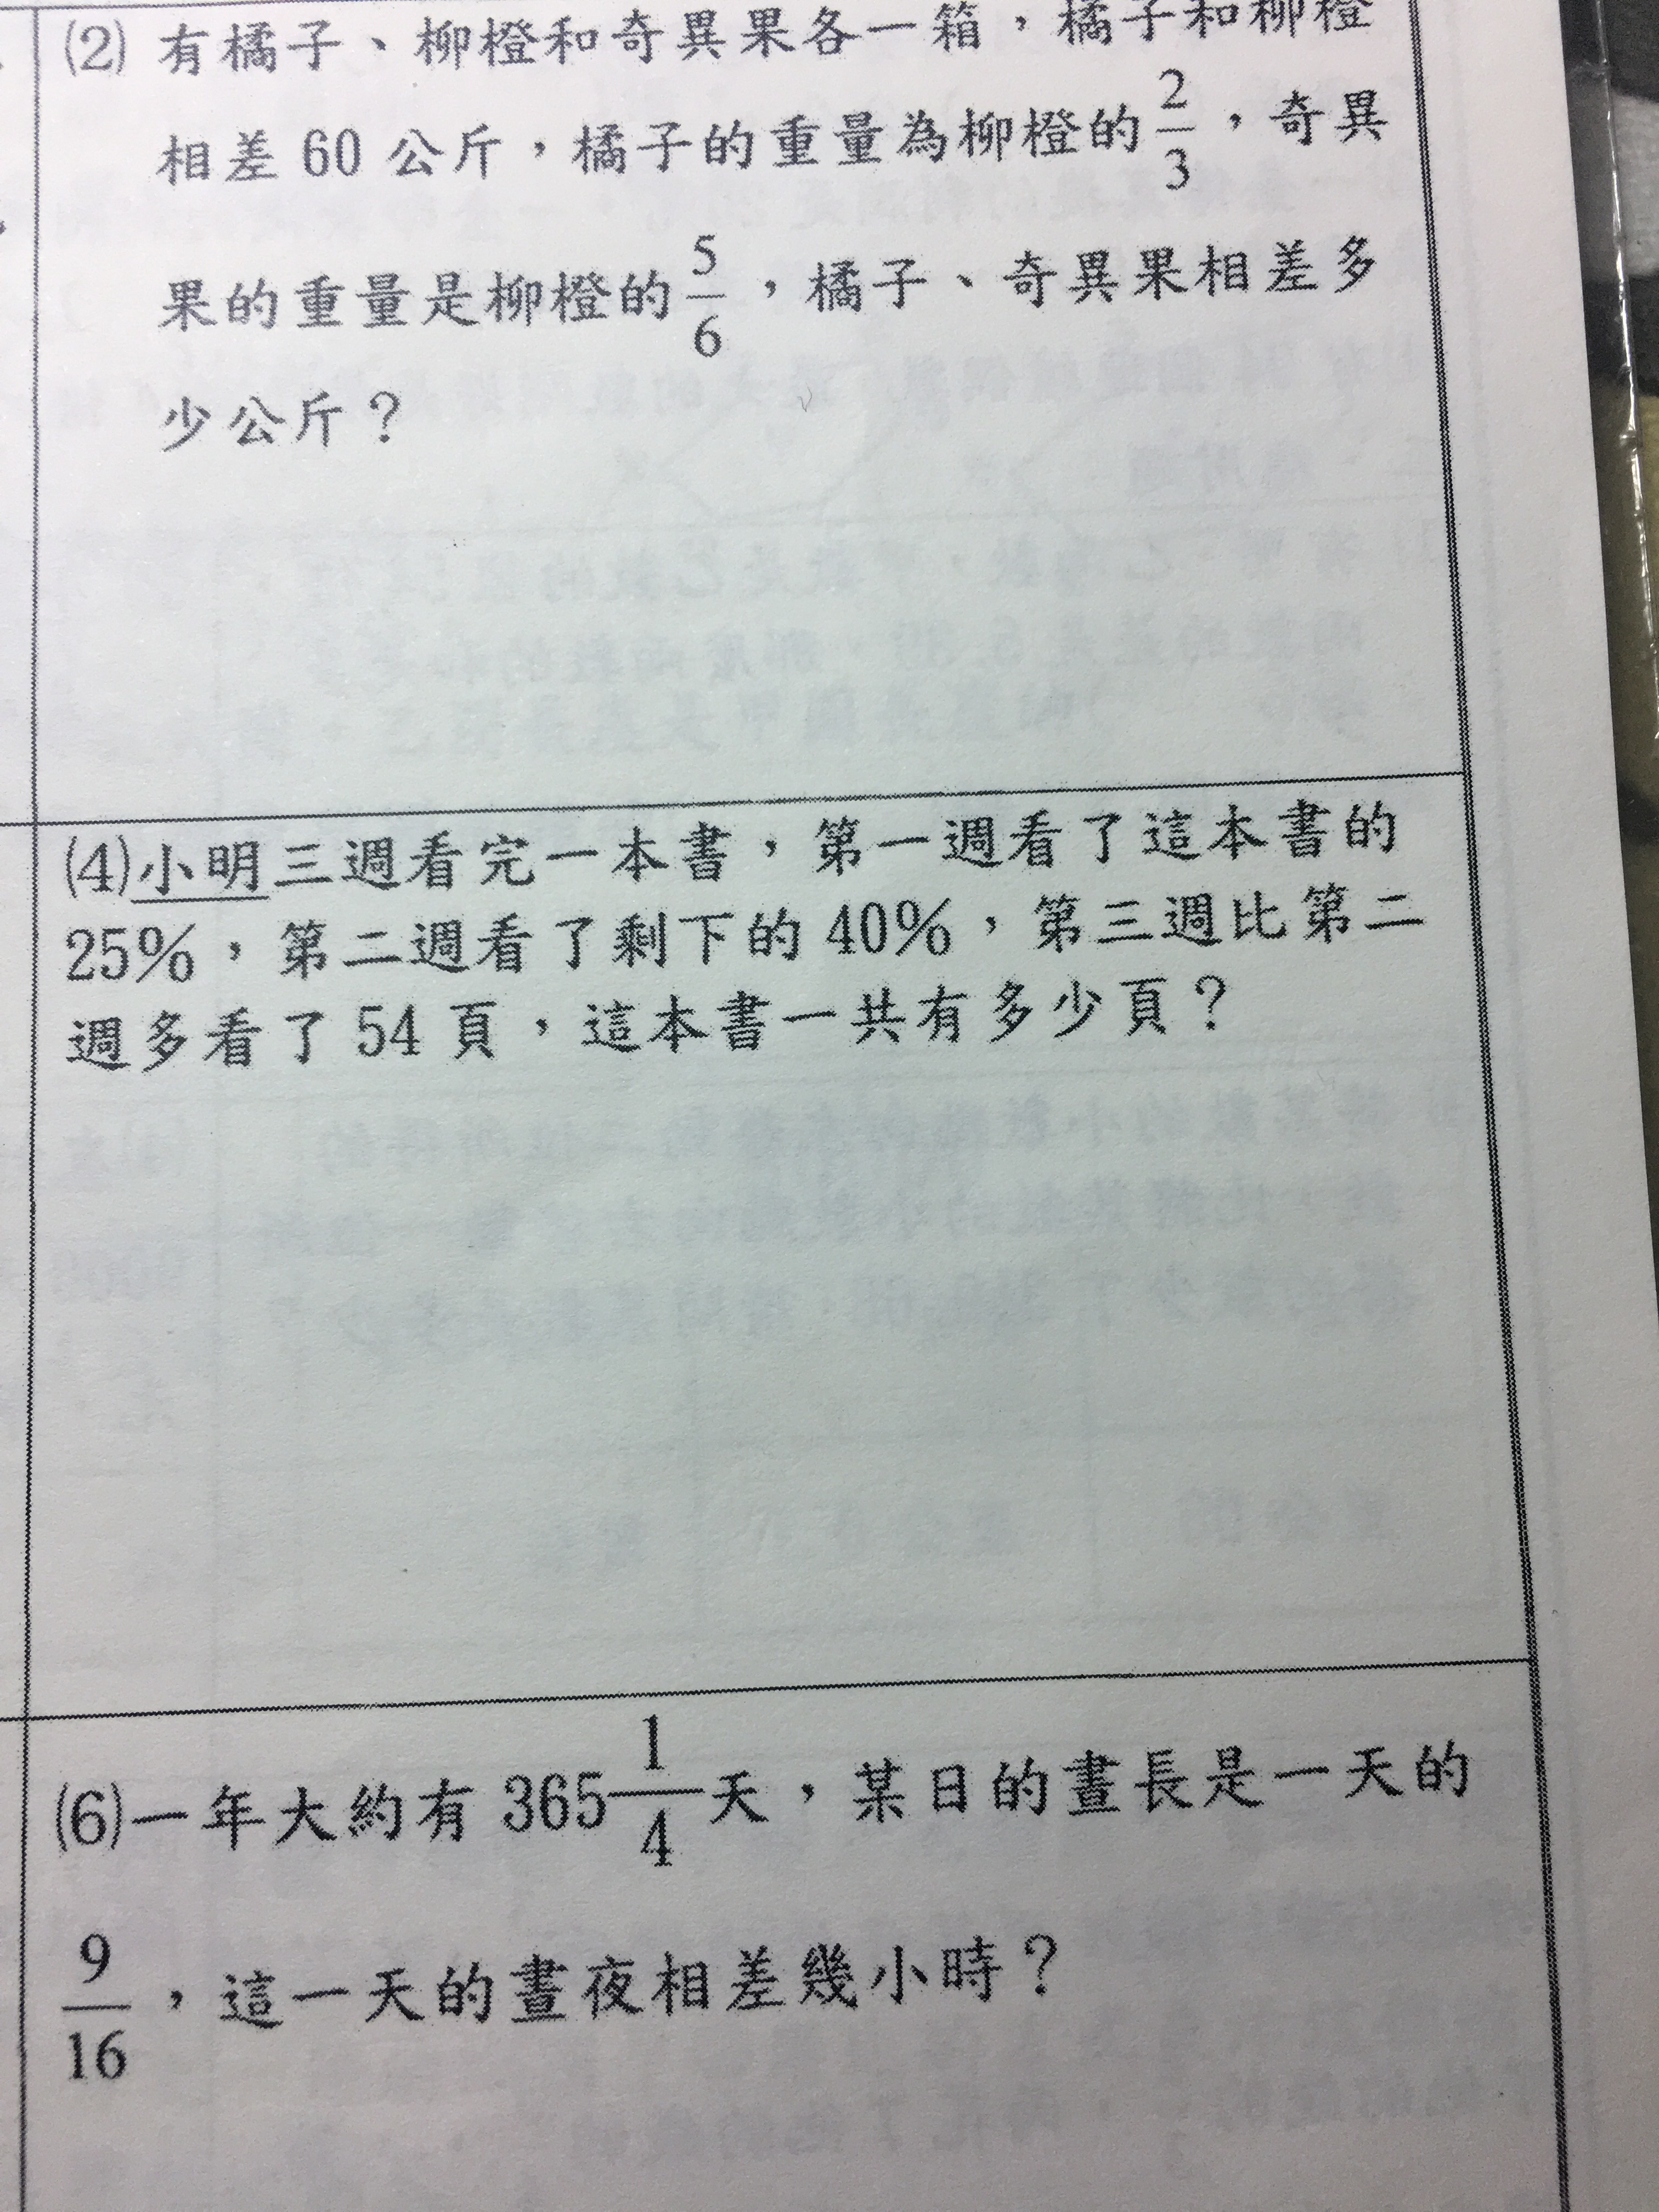 (2) 有橘子、柳橙和奇異果各一箱，橘子和柳橙
相差 60 公斤，橘子的重量為柳橙的2/3，奇異
果的重量是柳橙的5/6，橘子、奇異果相差多
少公斤？
(4)小明三週看完一本書，第一週看了這本書的
25%，第二週看了剩下的 40%，第三週比第二
週多看了 54 頁，這本書一共有多少頁？
(6)一年大約有 365 1/4天，某日的晝長是一天的
9/16，這一天的晝夜相差幾小時？